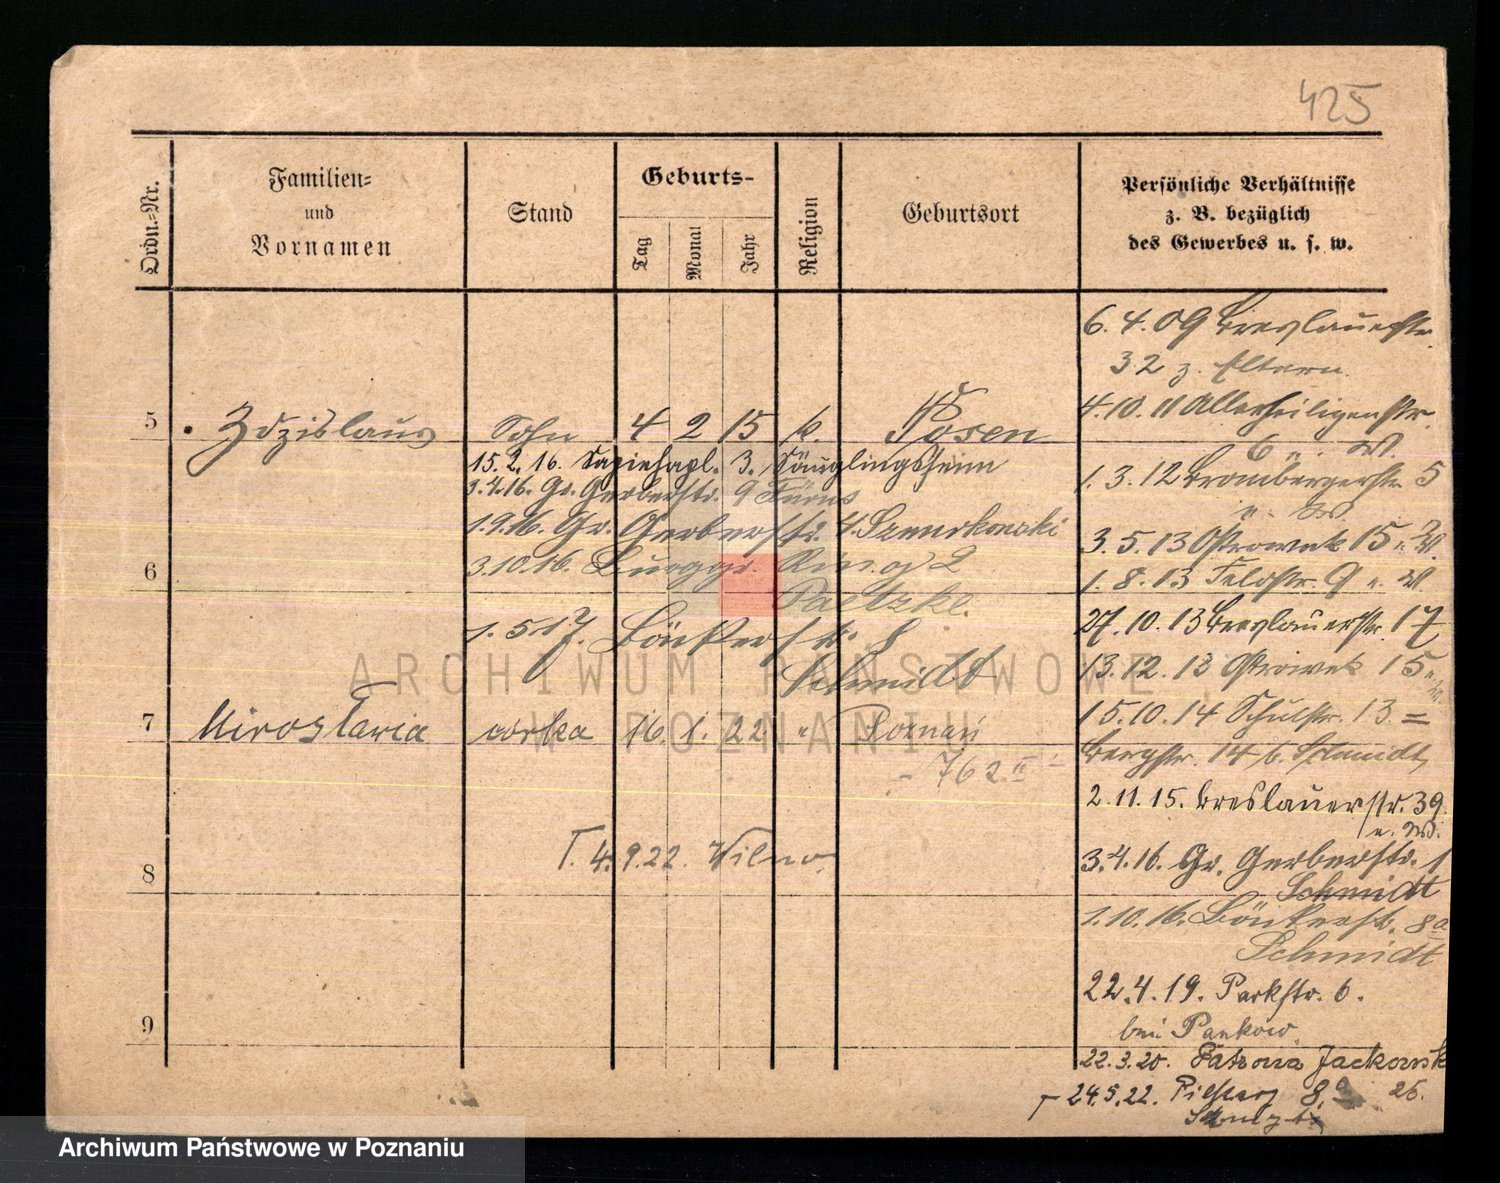 425
Ordn.-Nr.
Familien-
und
Vornamen
Stand
Geburts-
Tag
Monat
Jahr
Religion
Geburtsort
Persönliche Verhältnisse
z. B. bezüglich
des Gewerbes u. s. w.
5 Zdzislaus Sohn 4 2 15 k. Posen
15.2.16. Sapiehapl. 3. Säuglingsheim
3.4.16. Gr. Gerberstr. 9
1.9.16. Gr. Gerberstr. 4. Szmrkowski
3.10.16. Burggr. Ring 2
6
Paetzke.
1.5.17. Bäckerstr. 8
Schmidt
7 Mirosława córka 16. 1. 22 " Poznań
- 762 II
T. 4.9.22. Wilno
8
9
6.4.09 Breslauerstr.
32 z. Eltern.
4.10.11 Allerheiligenstr.
6 u. W.
1.3.12 Brombergerstr. 5
u. W.
3.5.13 Ostrowek 15 u. W.
1.8.13 Feldstr. 9 u. W.
27.10.13 Breslauerstr. 17
13.12.13 Ostrowek 15
15.10.14 Schulstr. 13 =
Bergstr. 14 b. Schmidt
2.11.15. Breslauerstr. 39.
u. W.
3.4.16. Gr. Gerberstr. 1
Schmidt
1.10.16. Bäckerstr. 8a
Schmidt
22.4.19. Parkstr. 6.
bei Pankow.
22.3.20. Patrona Jackowsk
24.5.22. 8.a 26.
ARCHIWUM PAŃSTWOWE
W POZNANIU
Archiwum Państwowe w Poznaniu